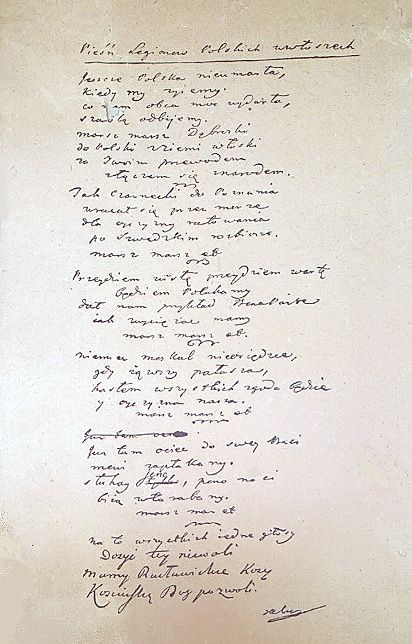 Pieśń Legionow Polskich wewłoszech
Jeszcze Polska nieumarła,
kiedy my żyiemy.
co nam obca moc wydarła,
szablą odbijemy.
marsz marsz Dąbrski
do Polski zziemi włoski
za Twoim przewodem
złączem się znarodem.
Jak Czarnecki do Poznania
wracał się przez morze
dla oyczyzny ratowania
po Szwedzkim rozbiorze.
marsz marsz et
Przeydziem wisłę przeydziem wartę
będziem Polakamy
dał nam przykład Bonaparte
jak zwyciężac mamy
marsz marsz et.
niemiec moskal nieosiędzie,
gdy iąwszy pałasza,
hasłem wszystkich zgoda będzie
y oyczyzna nasza.
marsz marsz et
Jusz tam ociec
Jusz tam ociec do swey Basi
mówi zapłakany.
słuchay jeno, pono nasi
bią wtarabany.
marsz mar et
na to wszystkich iedne głosy
Dosyć tey niewoli
Mamy Racławickie Kosy
Kosciuszkę Bog pozwoli.